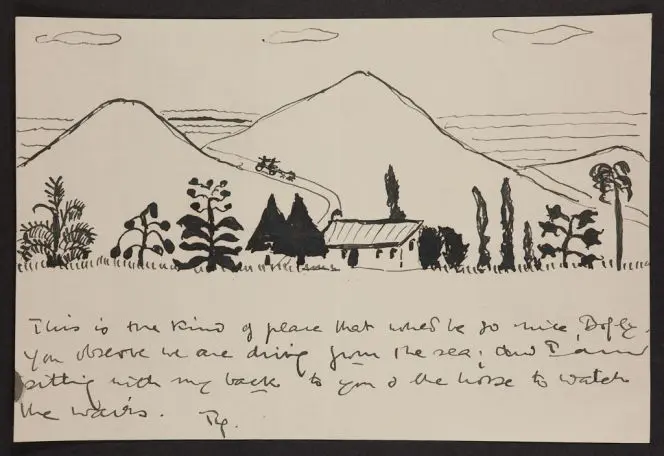 This is the kind of place that wher'd be so nice,
You observe we are driving from the sea; and I am
sitting with my back to you & the horse to watch
the waves.